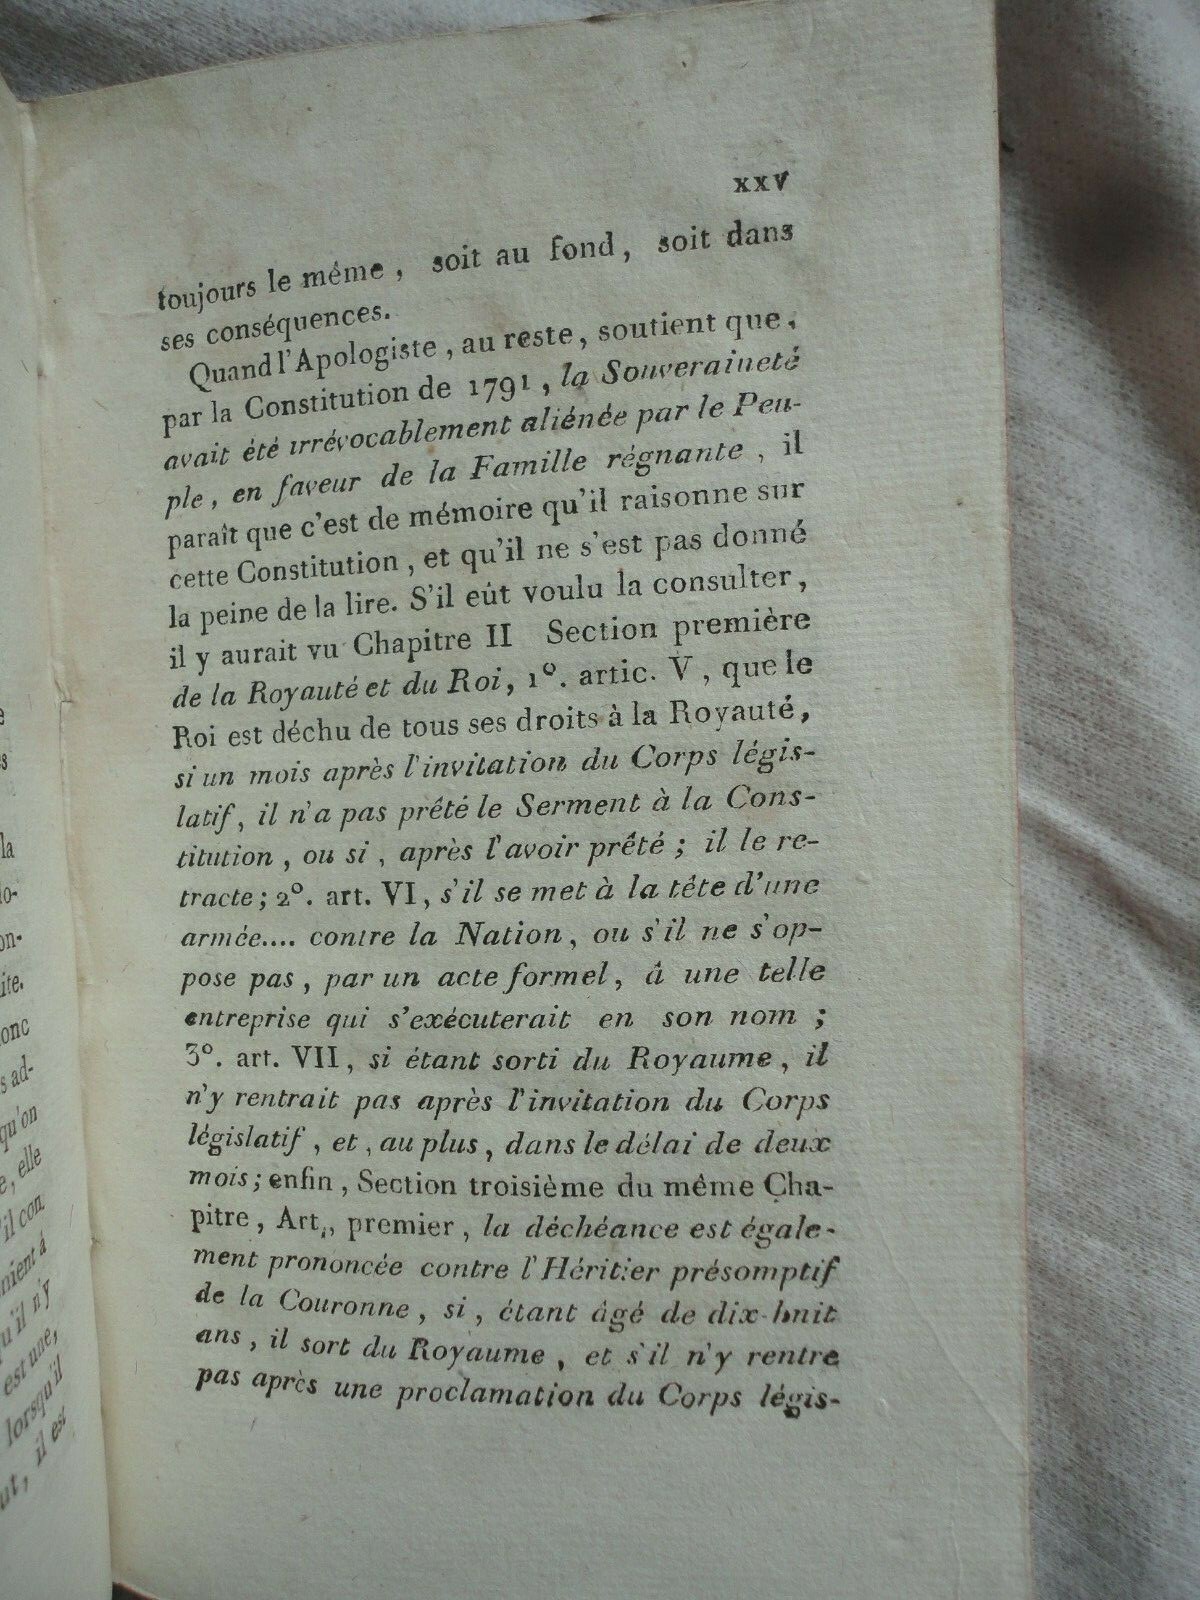 xxv
toujours le même, soit au fond, soit dans
ses conséquences.
Quand l'Apologiste, au reste, soutient que,
par la Constitution de 1791, la Souveraineté
avait été irrévocablement aliénée par le Peu-
ple, en faveur de la Famille régnante, il
paraît que c'est de mémoire qu'il raisonne sur
cette Constitution, et qu'il ne s'est pas donné
la peine de la lire. S'il eût voulu la consulter,
il y aurait vu Chapitre II Section première
de la Royauté et du Roi, 1º. artic. V, que le
Roi est déchu de tous ses droits à la Royauté,
si un mois après l'invitation du Corps légis-
latif, il n'a pas prêté le Serment à la Cons-
titution, ou si, après l'avoir prêté; il le re-
tracte; 2º. art. VI, s'il se met à la tête d'une
armée.... contre la Nation, ou s'il ne s'op-
pose pas, par un acte formel, à une telle
entreprise qui s'exécuterait en son nom;
3º. art. VII, si étant sorti du Royaume, il
n'y rentrait pas après l'invitation du Corps
législatif, et, au plus, dans le délai de deux
mois; enfin, Section troisième du même Cha-
pitre, Art., premier, la déchéance est égale-
ment prononcée contre l'Héritier présomptif
de la Couronne, si, étant âgé de dix-huit
ans, il sort du Royaume, et s'il n'y rentre
pas après une proclamation du Corps légis-
la
lo-
on-
ite.
onc
s ad-
qu'on
e, elle
'il con
nient à
qu'il n'y
est une,
lorsqu'il
ut, il est